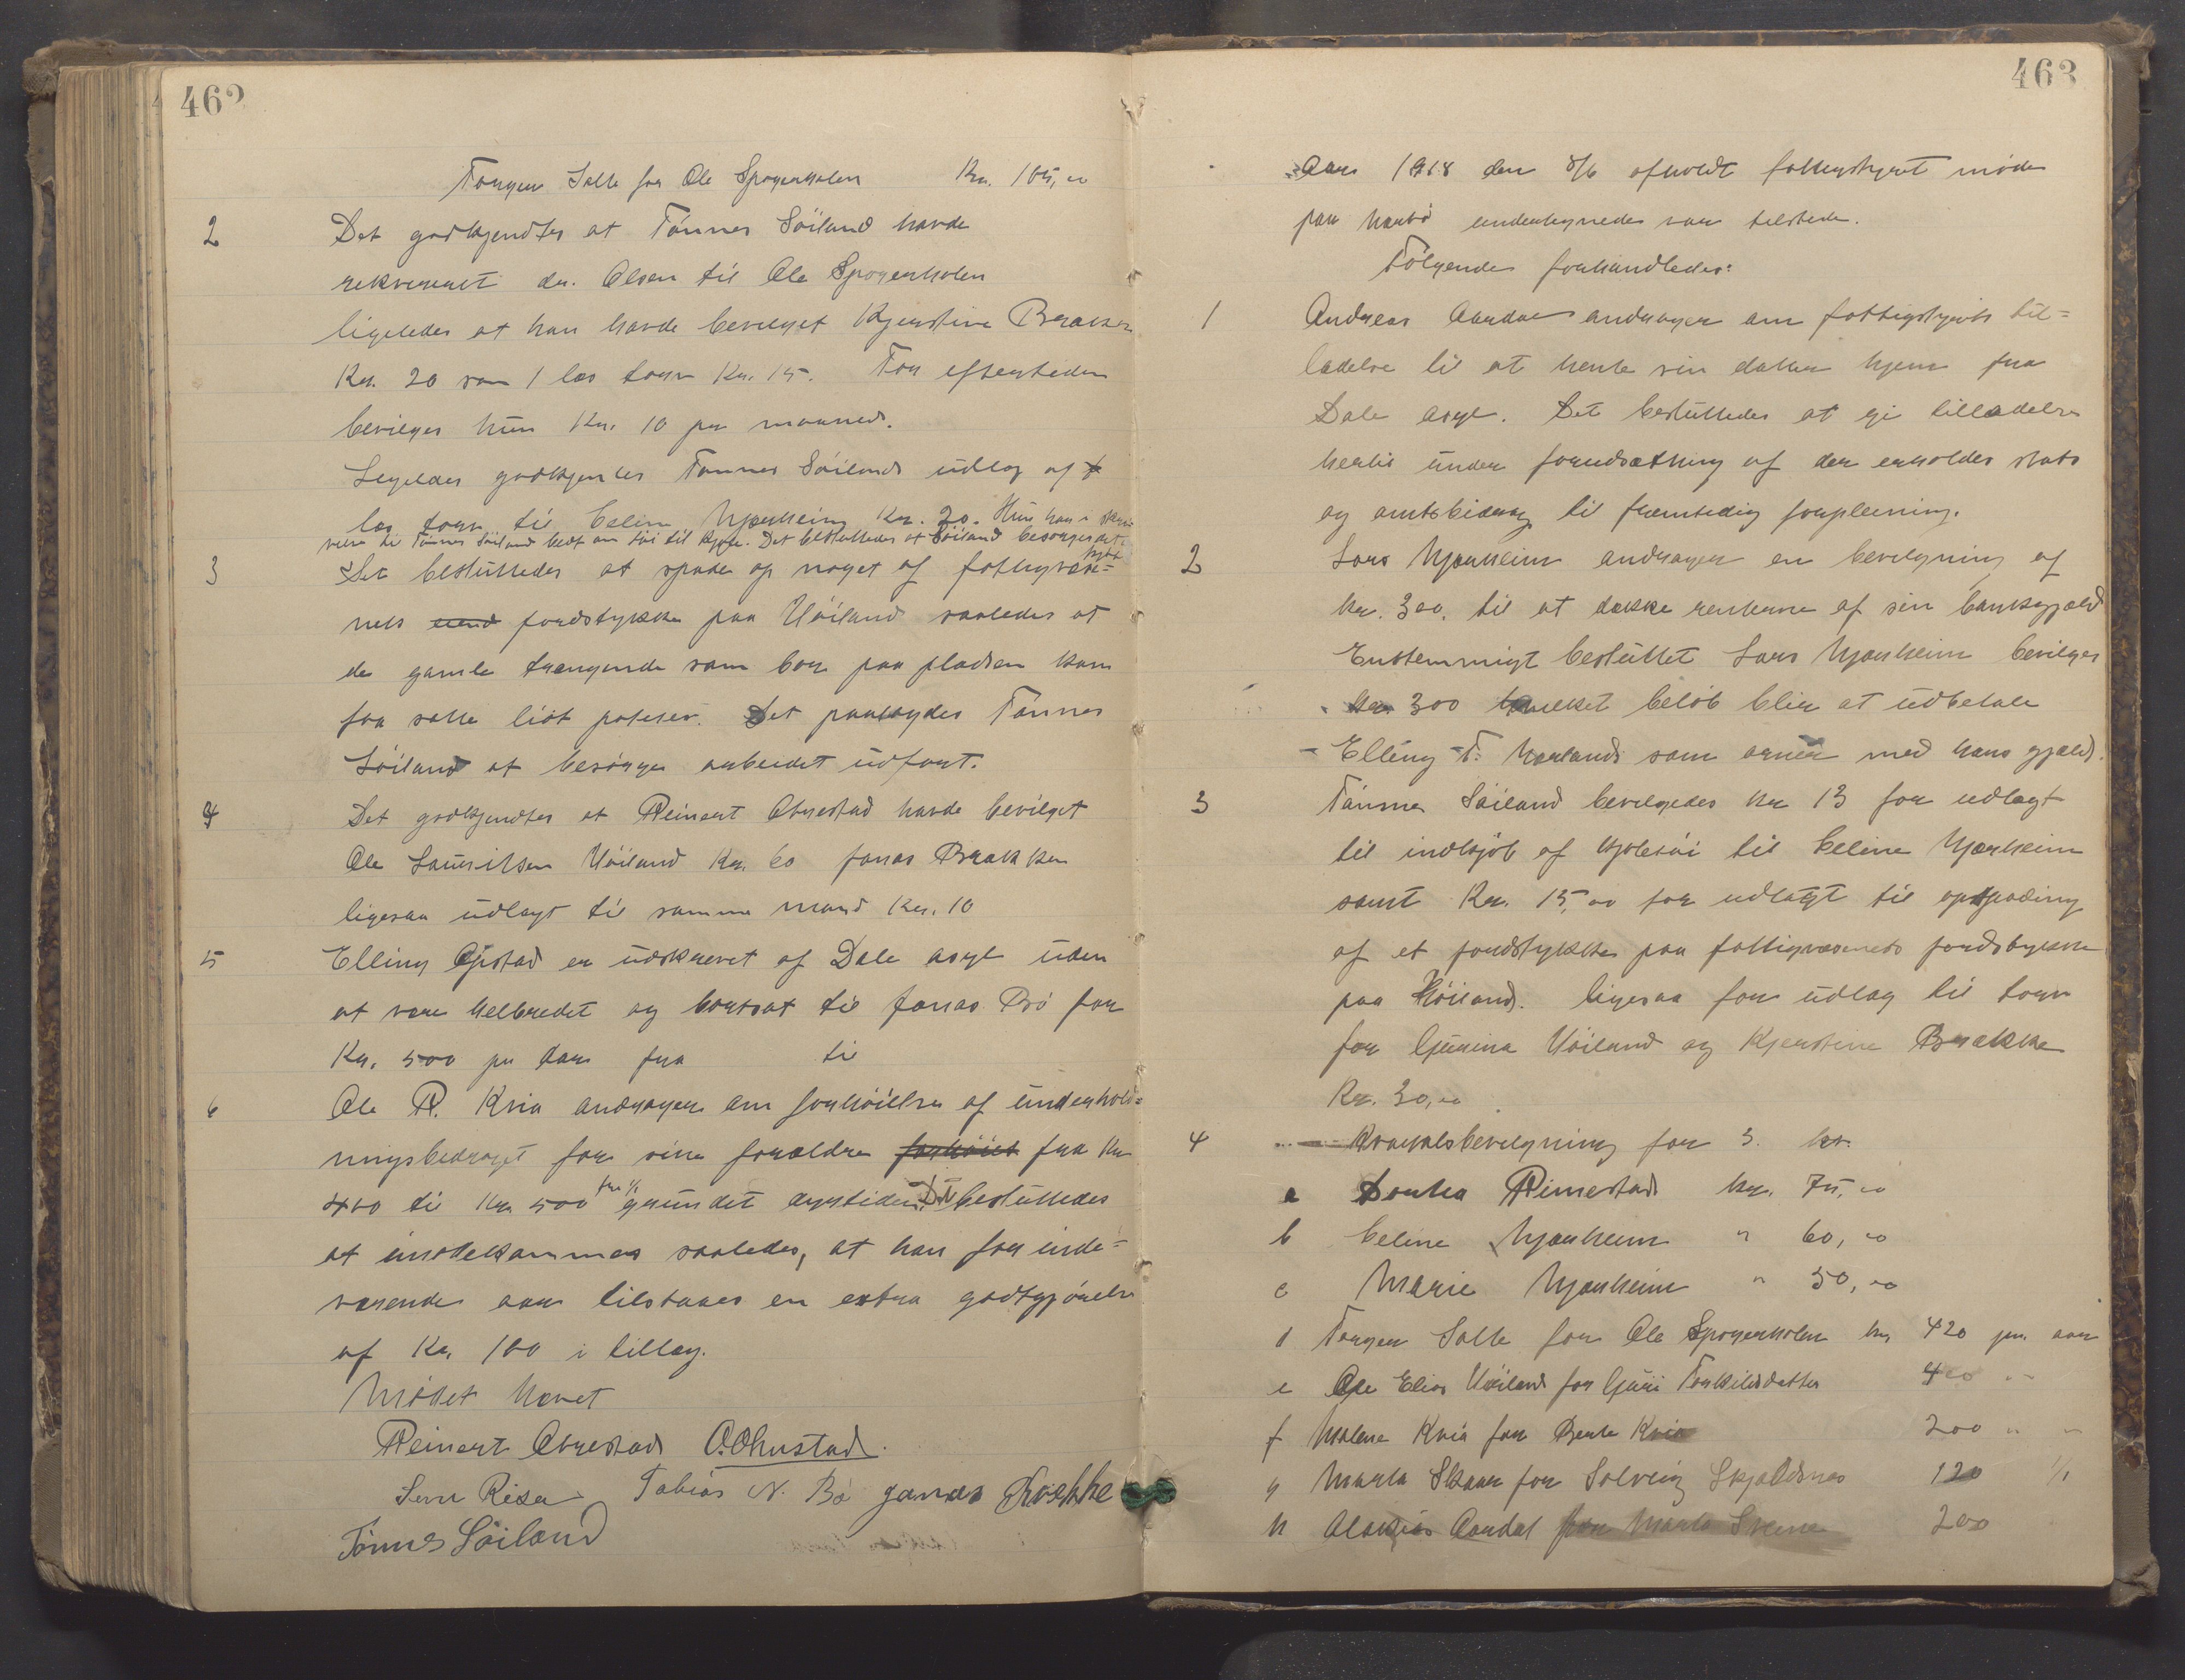 462
Torger Salte for Ole Spogerholen Kr. 105,00
2 Det godkjendtes at Tønnes Söiland havde
rekvirert dr. Olsen til Ole Spogerholen
ligeledes at han havde bevilget Kjerstine Brække
Kr. 20 som 1 læs torv Kr. 15. For eftertiden
bevilges hun Kr. 10 pr maaned.
Ligeledes godkjendtes Tønnes Söilands udlæg af
læs torv til Celine Njærheim Kr. 20. Hun har i skri
velse til Tønnes Söiland bedt om töi til kjole. Det besluttedes at Söiland besørger det
kjøbt
3 Det besluttedes at spade op noget af fattigvæse=
nets jordstykke paa Höiland saaledes at
de gamle trængende som bor paa pladsen kan
faa sætte lidt poteter. Det paalagdes Tønnes
Söiland at besørge arbeidet udført.
4 Det godkjendtes at Reinert Obrestad havde bevilget
Ole Lauritsen Höiland Kr. 60 Jonas Brækken
ligesaa udlagt til samme mand Kr. 10
5 Elling Opstad er udskrevet af Dale asyl uden
at være helbredet og bortsat til Jonas Bö for
Kr. 500 pr aar fra til
6 Ole R. Kvia andrager om forhöielse af underhold=
ningsbedraget for sine forældre forhöiet fra Kr
400 til Kr. 500 fra 1/1 grundet dyrtiden. Det besluttedes
at imødekommes saaledes, at han for inde=
værende aar tilstaaes en extra godtgjørelse
af Kr. 100 i tillæg.
Mødet hævet
Reinert Obrestad O. Ohustad.
Sem Risa Tobias N. Bö Jonas Brække
Tønnes Söiland
463
Aar 1918 den 8/6 afholdt fattigstyret møde
paa Nærbø undertegnede var tilstede.
Følgende forhandledes:
1 Andreas Aardal andrager om fattigstyrets til=
ladelse til at hente sin datter hjem fra
Dale asyl. Det besluttedes at gi tilladelse
hertil under forudsætning af der erholdes stats
og amtsbidrag til fremtidig forpleining.
2 Lars Njærheim andrager en bevilgning af
kr. 300. til at dække renterne af sin bankgjæld
Enstemmigt besluttet Lars Njærheim bevilges
kr. 300 hvilket beløb blir at udbetale
Elling T. Hærland som ordner med hans gjæld.
3 Tønnes Söiland bevilgedes kr 13 for udlagt
til indkjøb af kjoletöi til Celine Njærheim
samt Kr. 15,00 for udlagt til opspading
af et jordstykke paa fattigvæsenets jordstykke
paa Höiland. ligesaa for udlæg til torv
for Gurina Höiland og Kjerstine Brække
Kr. 30,00
4 Kvartalsbevilgning for 3. kv.
a Dorthea Rimestad kr. 75,00
b Celine Njærheim " 60,00
c Marie Njærheim " 50,00
d Torger Salte for Ole Spogerholen kr 420 pr. aar
e Ole Elias Höiland for Guri Torkilsdatter 400 " "
f Malene Kvia for Berte Kvia 200 " "
g Marta Skaar for Solveig Skjaldsnes 120 1/1
h Aloisias Aardal for Marta Svene 200